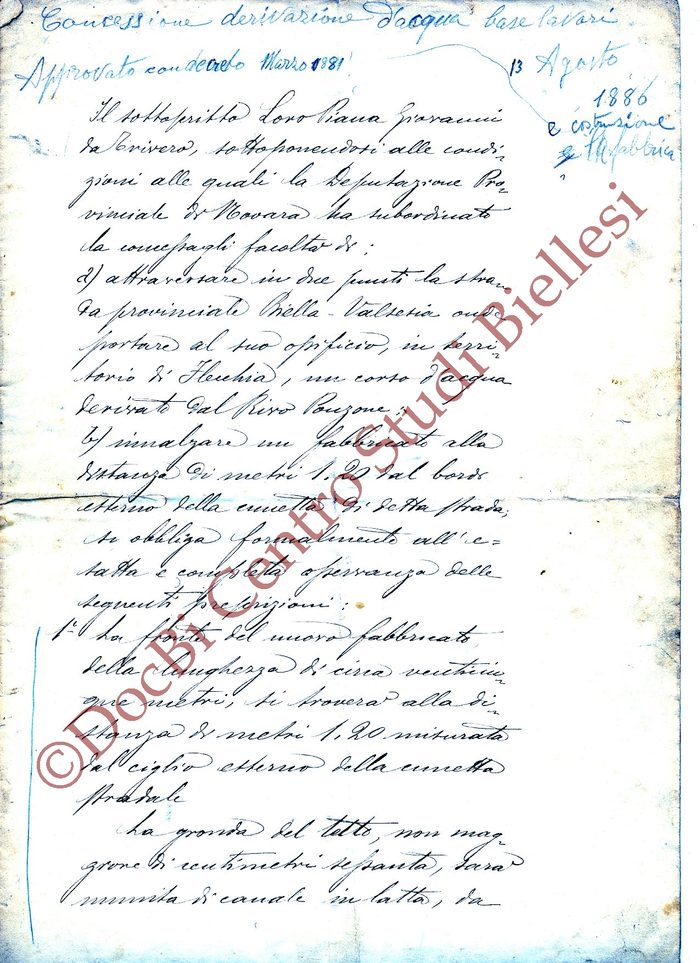 Concessione derivazione d'acqua base lavori
Approvato con decreto Marzo 1881
13 Agosto
1886
e costruzione
fabbrica
Il sottoscritto Loro Piana Giovanni
da Trivero, sottoponendosi alle condi-
zioni alle quali la Deputazione Pro-
vinciale di Novara ha subordinato
la concessagli facoltà di:
a) attraversare in due punti la stra-
da provinciale Biella-Valsesia onde
portare al suo opificio, in terri-
torio di Flecchia, un corso d'acqua
derivato dal Rivo Ponzone;
b) innalzare un fabbricato alla
distanza di metri 1,20 dal bordo
esterno della cunetta di detta strada;
si obbliga formalmente all'e-
satta e completa osservanza delle
seguenti prescrizioni:
1° La fronte del nuovo fabbricato,
della lunghezza di circa venticin-
que metri, si troverà alla di-
stanza di metri 1,20 misurata
dal ciglio esterno della cunetta
stradale
La gronda del tetto, non mag-
giore di centimetri sessanta, sarà
munita di canale in latta, da
©DocBi Centro Studi Biellesi